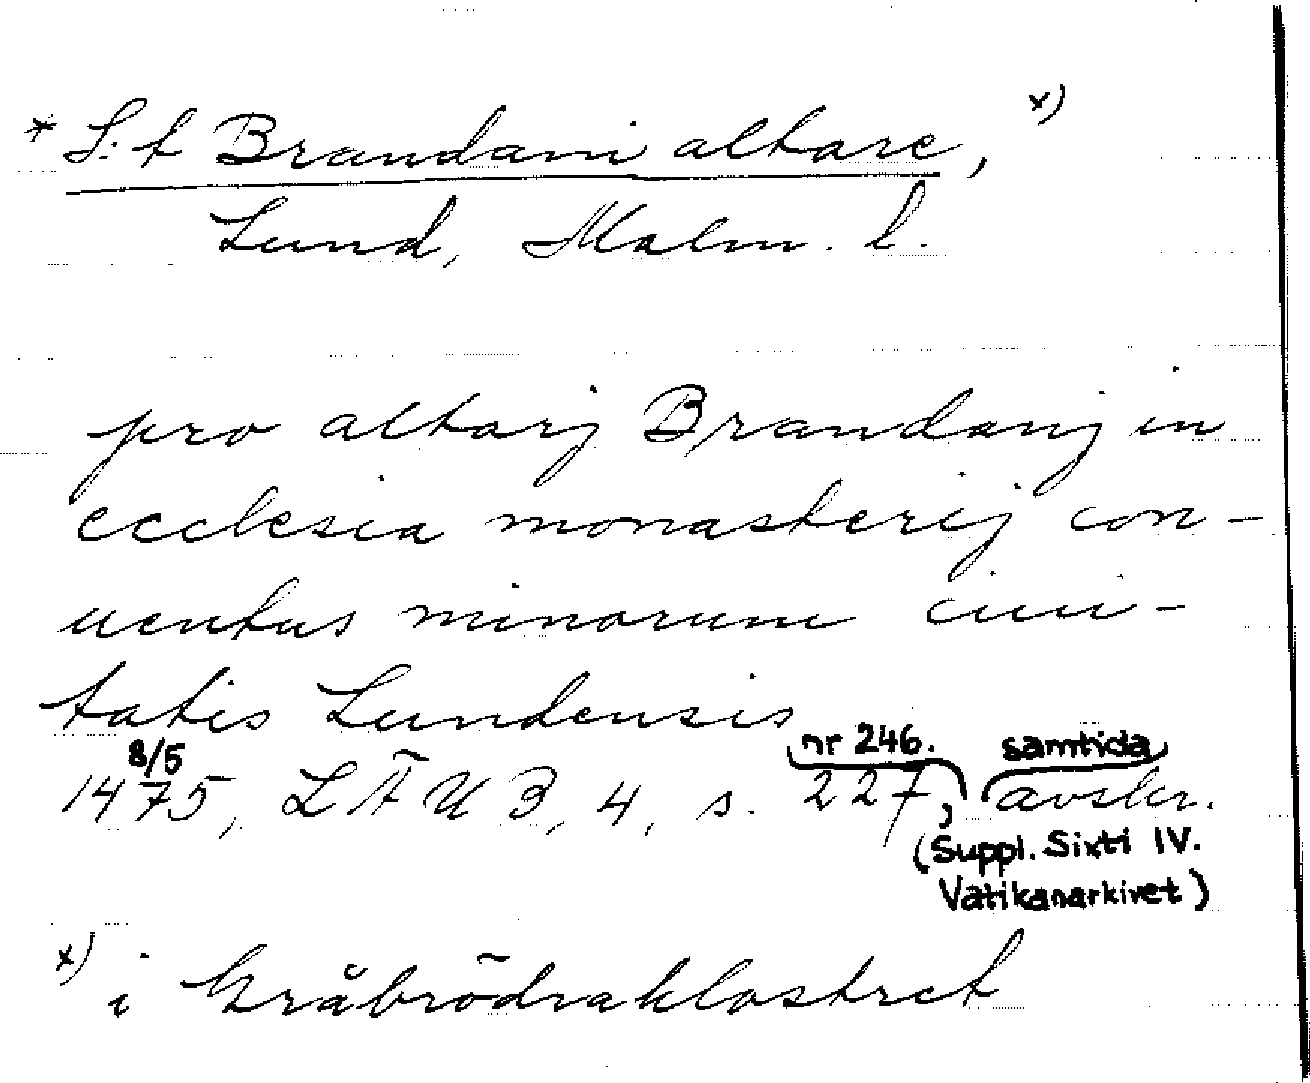 * S:t Brandani altare, x)
Lund, Malm. l.
pro altarj Brandanj in
ecclesia monasterij con-
uentus minorum ciui-
tatis Lundensis
8/5 nr 246. samtida
1475, LÄUB, 4, s. 227, avskr.
(Suppl. Sixti IV.
Vatikanarkivet)
x) i Gråbrödraklostret